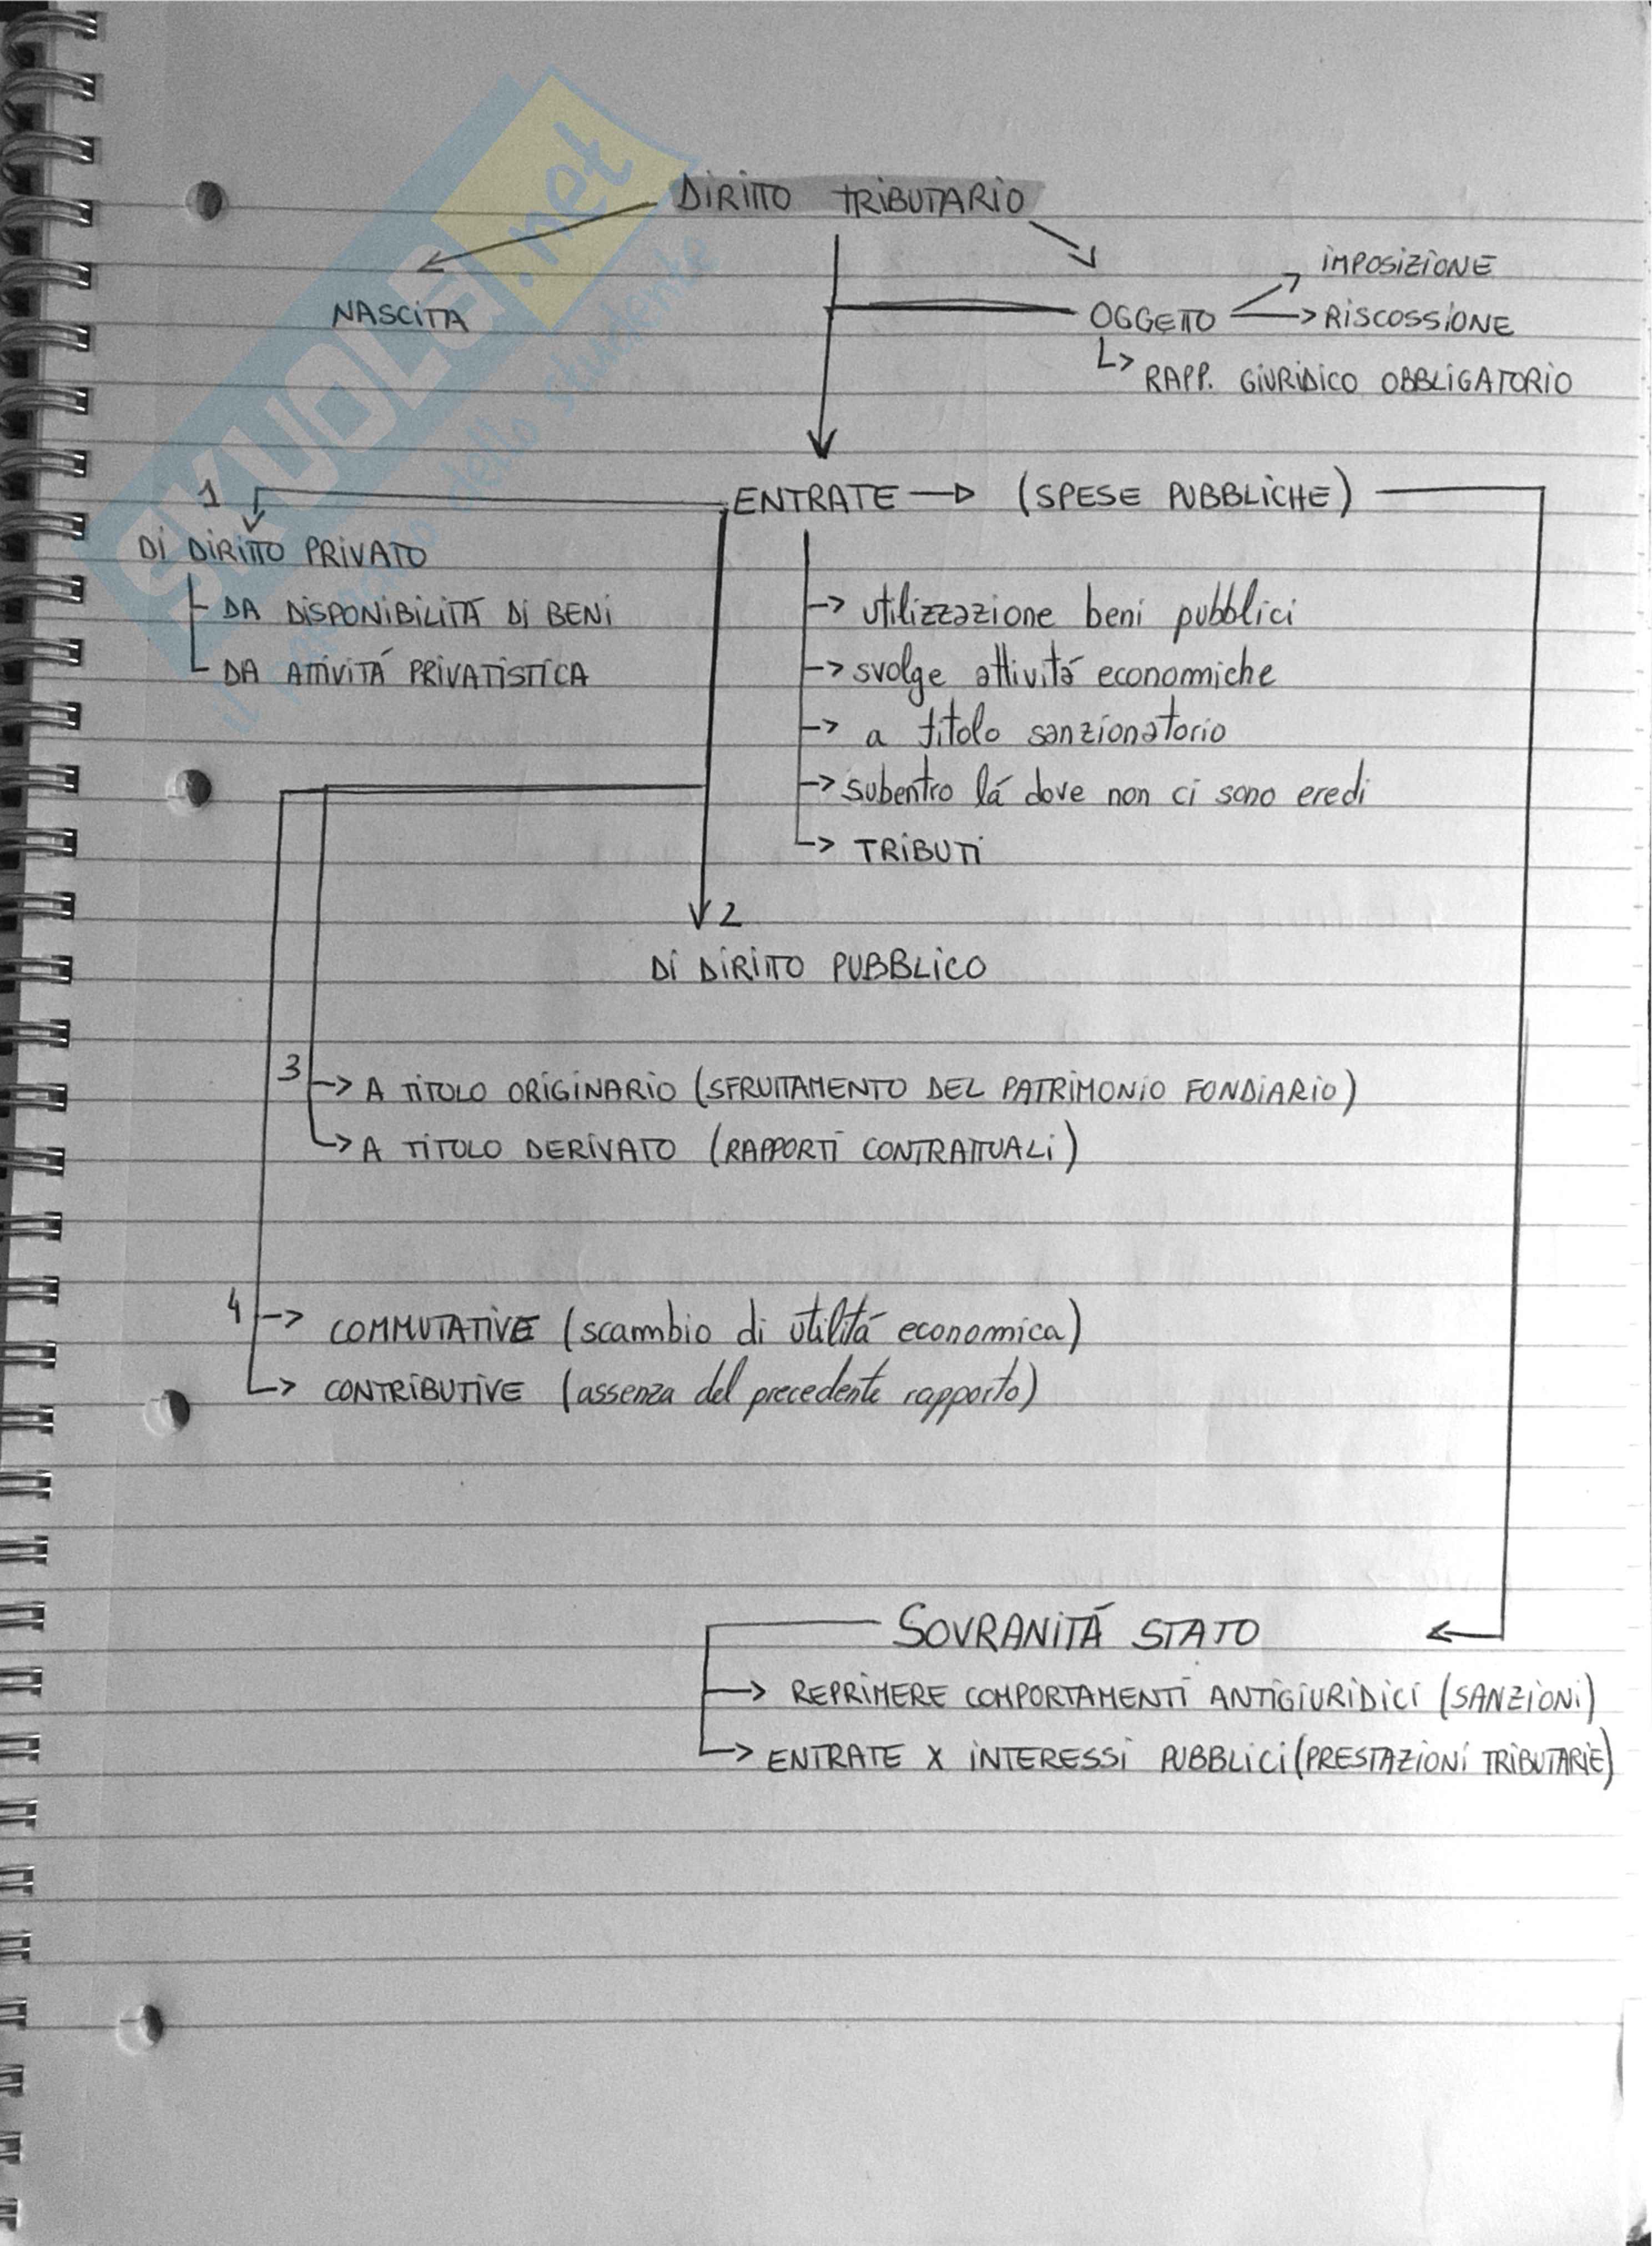 SKUOLA.net
il paradiso dello studente
DIRITTO TRIBUTARIO
NASCITA
OGGETTO
IMPOSIZIONE
RISCOSSIONE
RAPP. GIURIDICO OBBLIGATORIO
ENTRATE (SPESE PUBBLICHE)
1
DI DIRITTO PRIVATO
DA DISPONIBILITÁ DI BENI
DA ATTIVITÁ PRIVATISTICA
utilizzazione beni pubblici
svolge attivitá economiche
a titolo sanzionatorio
subentro lá dove non ci sono eredi
TRIBUTI
2
DI DIRITTO PUBBLICO
3
A TITOLO ORIGINARIO (SFRUTTAMENTO DEL PATRIMONIO FONDIARIO)
A TITOLO DERIVATO (RAPPORTI CONTRATTUALI)
4
COMMUTATIVE (scambio di utilitá economica)
CONTRIBUTIVE (assenza del precedente rapporto)
SOVRANITÁ STATO
REPRIMERE COMPORTAMENTI ANTIGIURIDICI (SANZIONI)
ENTRATE X INTERESSI PUBBLICI (PRESTAZIONI TRIBUTARIE)